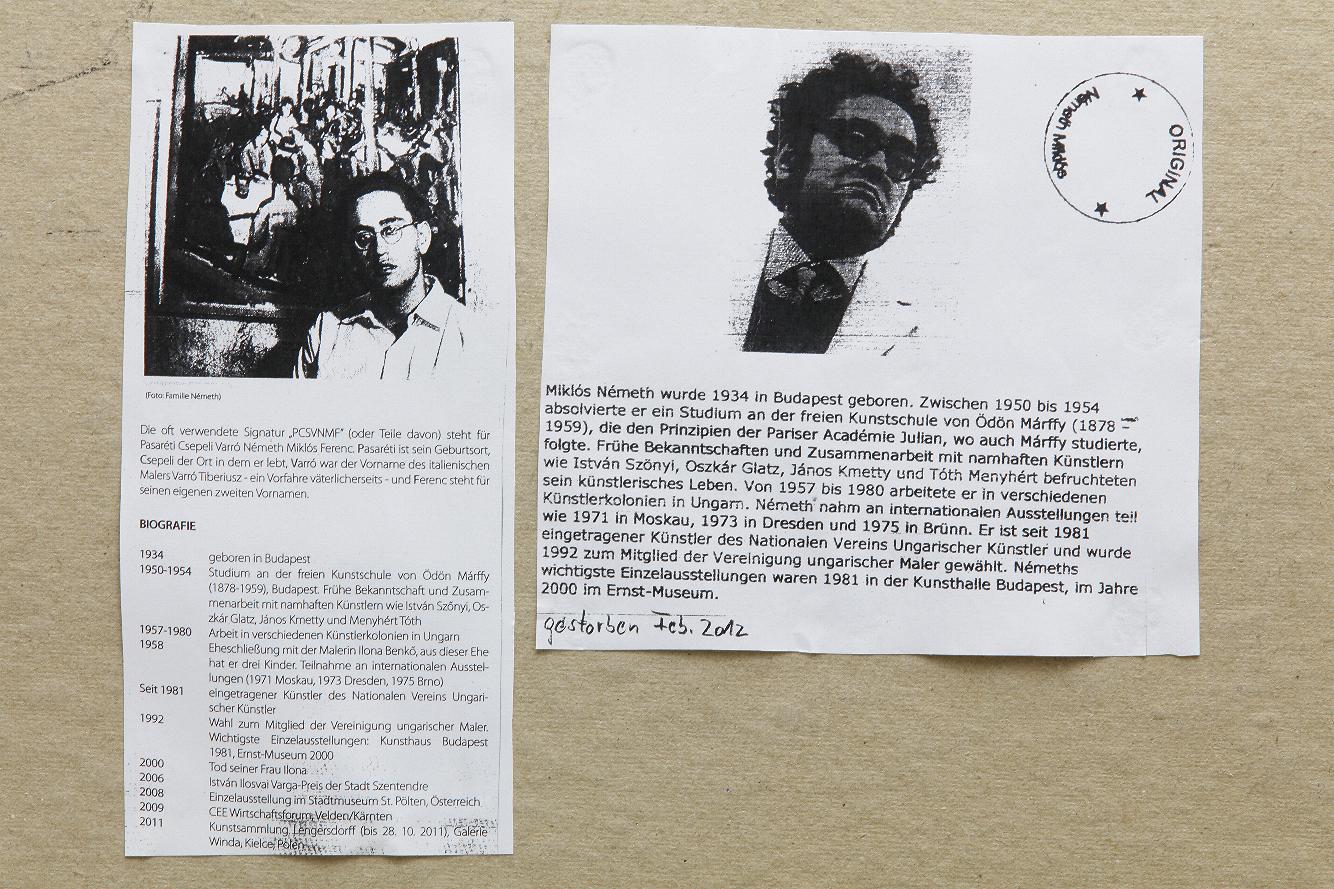 (Foto: Familie Németh)
Die oft verwendete Signatur „PCSVNMF" (oder Teile davon) steht für
Pasaréti Csepeli Varró Németh Miklós Ferenc. Pasaréti ist sein Geburtsort,
Csepeli der Ort in dem er lebt, Varró war der Vorname des italienischen
Malers Varró Tiberiusz - ein Vorfahre väterlicherseits - und Ferenc steht für
seinen eigenen zweiten Vornamen.
BIOGRAFIE
1934 geboren in Budapest
1950-1954 Studium an der freien Kunstschule von Ödön Márffy
(1878-1959), Budapest. Frühe Bekanntschaft und Zusam-
menarbeit mit namhaften Künstlern wie István Szőnyi, Os-
zkár Glatz, János Kmetty und Menyhért Tóth
1957-1980 Arbeit in verschiedenen Künstlerkolonien in Ungarn
1958 Eheschließung mit der Malerin Ilona Benkő, aus dieser Ehe
hat er drei Kinder. Teilnahme an internationalen Ausstel-
lungen (1971 Moskau, 1973 Dresden, 1975 Brno)
Seit 1981 eingetragener Künstler des Nationalen Vereins Ungari-
scher Künstler
1992 Wahl zum Mitglied der Vereinigung ungarischer Maler.
Wichtigste Einzelausstellungen: Kunsthaus Budapest
1981, Ernst-Museum 2000
2000 Tod seiner Frau Ilona
2006 István Ilosvai Varga-Preis der Stadt Szentendre
2008 Einzelausstellung im Stadtmuseum St. Pölten, Österreich
2009 CEE Wirtschaftsforum, Velden/Kärnten
2011 Kunstsammlung Lengersdorff (bis 28. 10. 2011), Galerie
Winda, Kielce, Polen
ORIGINAL
Németh Miklós
Miklós Németh wurde 1934 in Budapest geboren. Zwischen 1950 bis 1954
absolvierte er ein Studium an der freien Kunstschule von Ödön Márffy (1878 -
1959), die den Prinzipien der Pariser Académie Julian, wo auch Márffy studierte,
folgte. Frühe Bekanntschaften und Zusammenarbeit mit namhaften Künstlern
wie István Szönyi, Oszkár Glatz, János Kmetty und Tóth Menyhért befruchteten
sein künstlerisches Leben. Von 1957 bis 1980 arbeitete er in verschiedenen
Künstlerkolonien in Ungarn. Németh nahm an internationalen Ausstellungen teil
wie 1971 in Moskau, 1973 in Dresden und 1975 in Brünn. Er ist seit 1981
eingetragener Künstler des Nationalen Vereins Ungarischer Künstler und wurde
1992 zum Mitglied der Vereinigung ungarischer Maler gewählt. Némeths
wichtigste Einzelausstellungen waren 1981 in der Kunsthalle Budapest, im Jahre
2000 im Ernst-Museum.
gestorben Feb. 2012